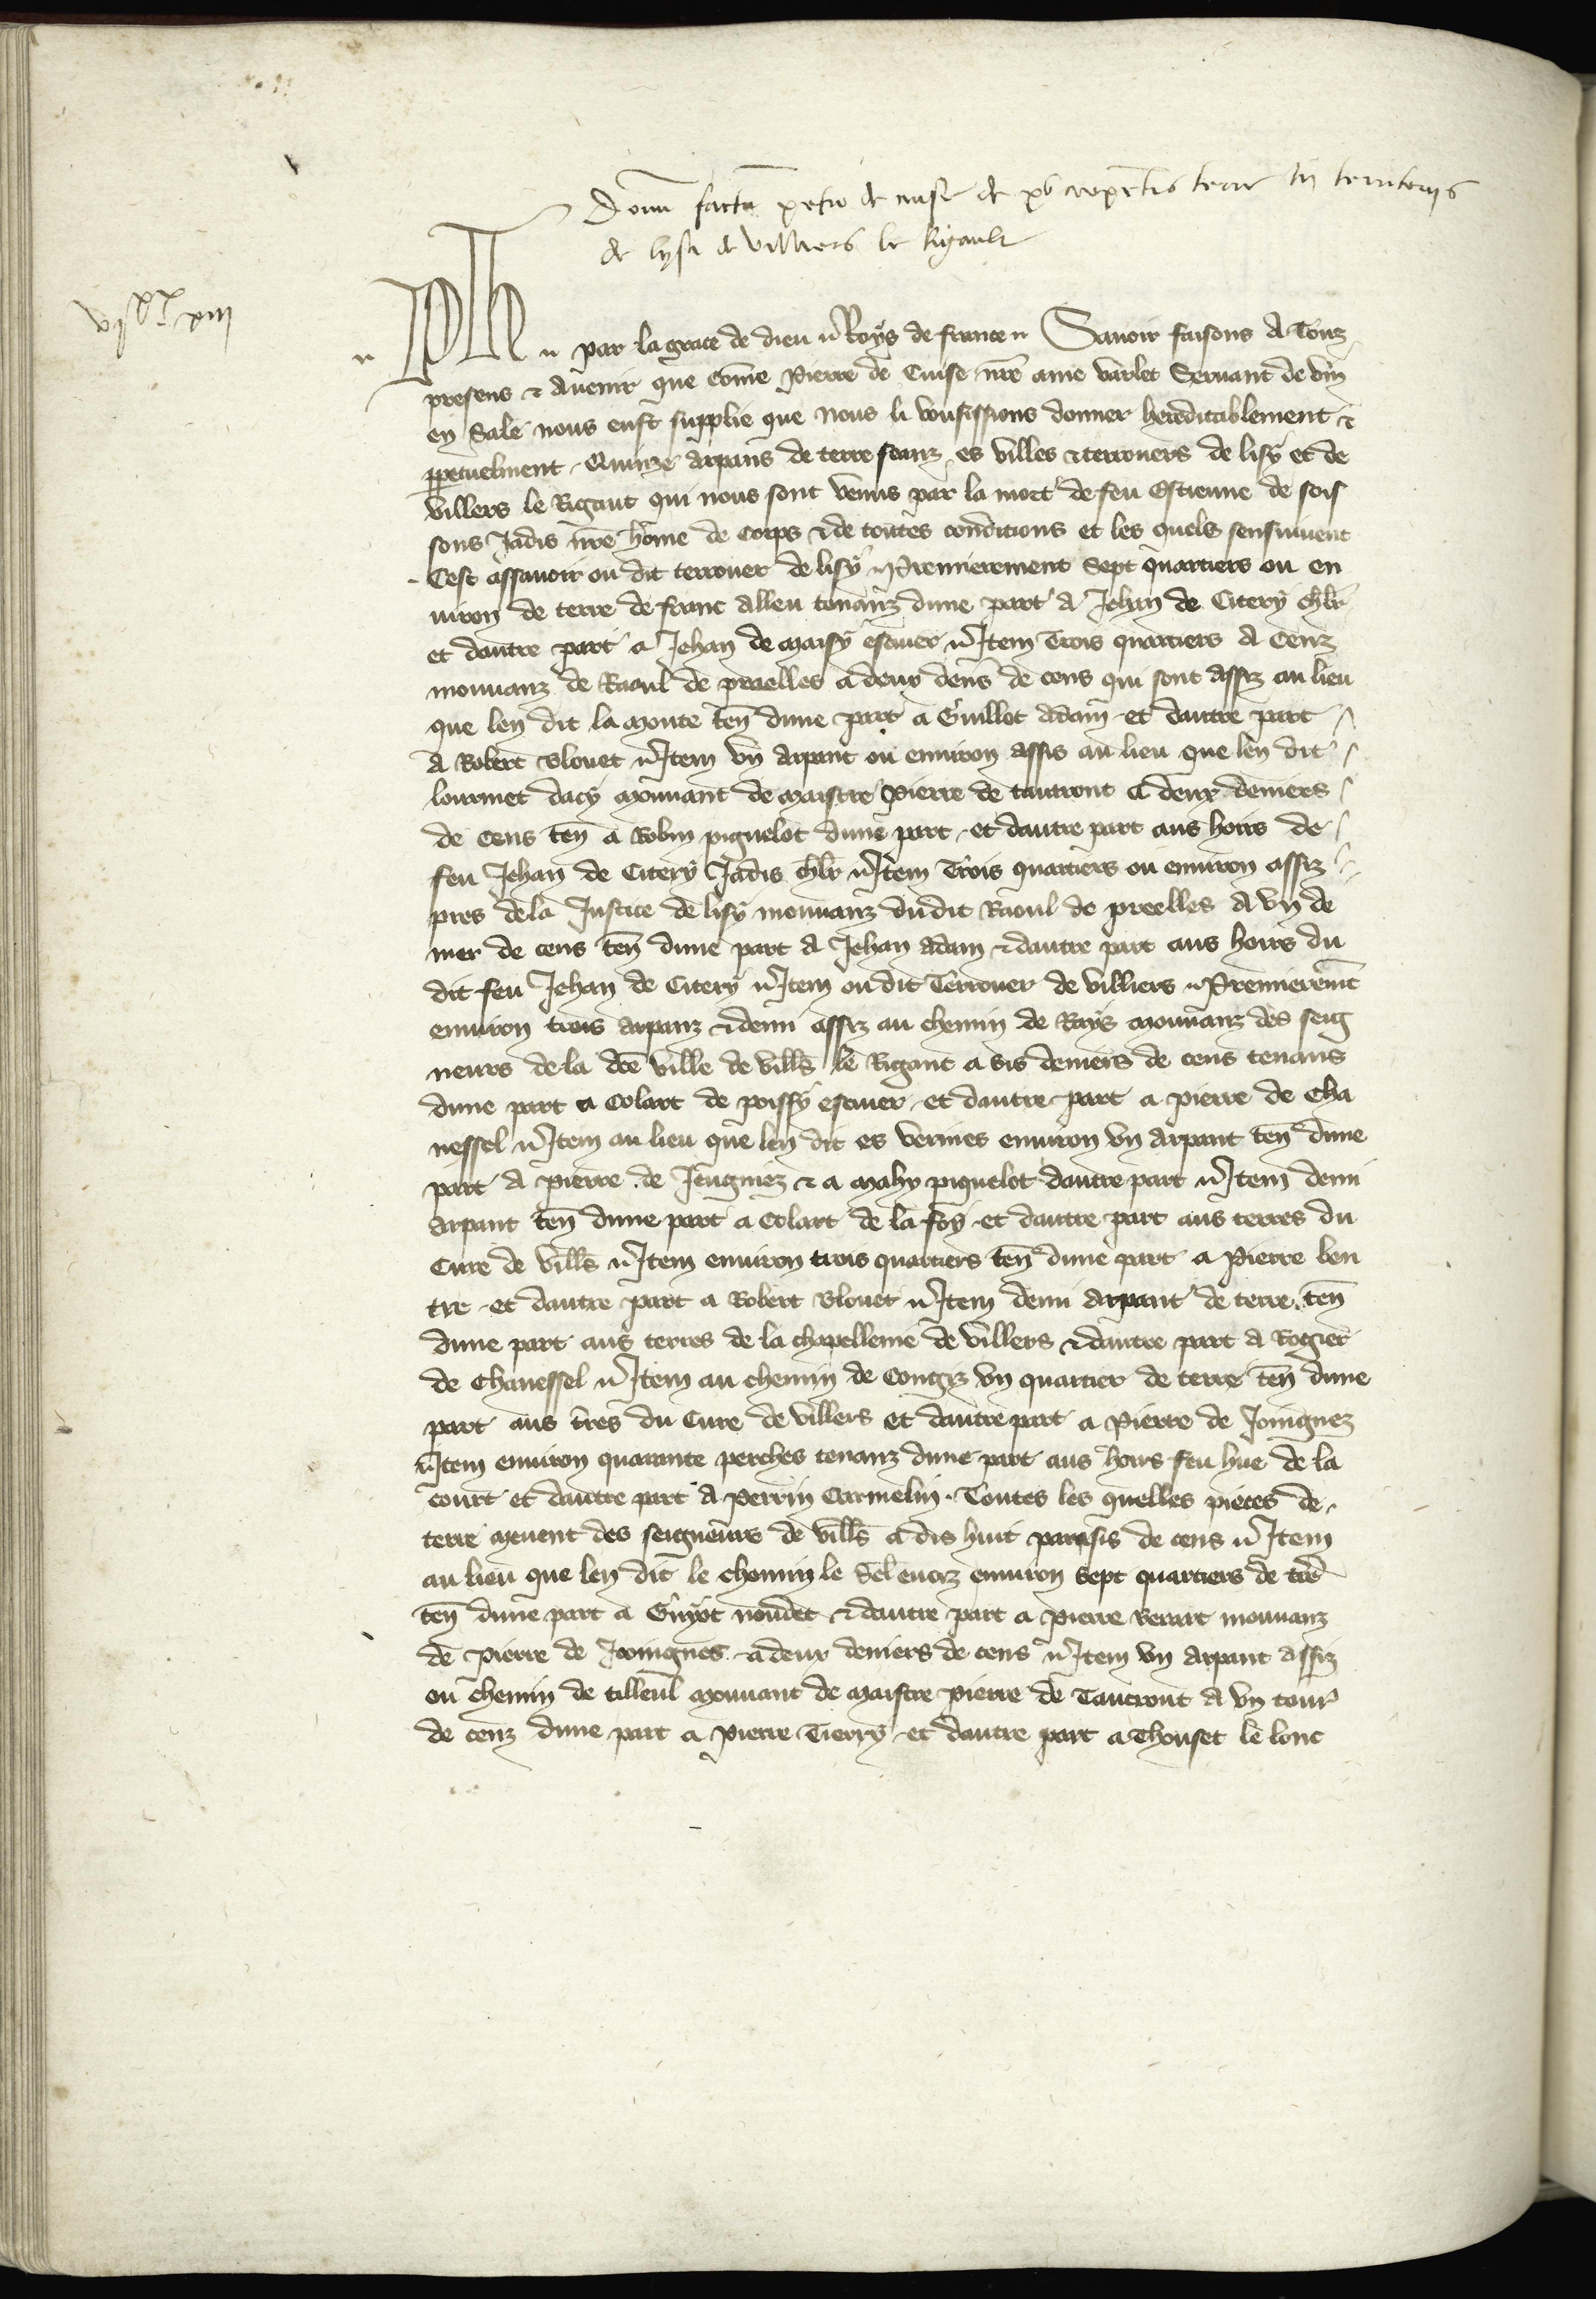 Donum factum petro de cuise de xv arpentis terre in territoriis
de lysi de villiers le Rigault
vj xx xiij
Ph par la grace de dieu Roys de france Savoir faisons A Touz
presens & avenir que come Pierre de Cuise nre ame varlet Servant de vin
en Sale nous eust supplie que nous li vousissions donner hereditablement &
ppetuelment Quinze Arpans de terre seanz es villes & terrouers de lisy et de
villers le Rigaut qui nous sont venus par la mort de feu Estienne de sois
sons Jadis nre home de Corps & de toutes conditions et les quels sensuivent
Cest assavoir ou dit terrouer de lisy Premierement Sept quartiers ou en
viron de terre de franc alleu tenanz dune part A Jehan de Citery chlr
et dautre part a Jehan de Marsy escuier Item Trois quartiers A Cenz
mouvanz de Raoul de preelles a deux deniers de cens qui sont Assiz au lieu
que len dit la monte ten dune part a Guillot Adam et dautre part
A Robert Blouet Item un Arpent ou environ assis au lieu que len dit
lourmet dacy mouvant de maistre Pierre de tautront a deux deniers
de Cens ten a Robin piguelot dune part et dautre part aus hoirs de
feu Jehan de Citery Jadis chlr Item Trois quartiers ou environ assiz
pres de la Justice de lisy mouvanz dudit Raoul de preelles A un de
nier de cens ten dune part A Jehan adam & dautre part aus hoirs du
dit feu Jehan de Citery Item ou dit Terrouer de villiers Premierement
environ trois arpanz & demi assiz au chemin de Roys mouvanz des seig
neurs de la dce ville de vills le Rigaut a sis deniers de cens tenans
dune part a Colart de poissy escuier et dautre part a pierre de Cha
nessel Item au lieu que len dit es vermes environ un Arpant ten dune
part A pierre de Juigniez & a mahy piguelot dautre part Item demi
Arpant ten dune part a Colart de la foy et dautre part aus terres du
Cure de vills Item environ trois quartiers ten dune part a Pierre ben
tre et dautre part a Robert Blouet Item demi Arpant de terre ten
dune part aus terres de la chapellenie de villers & dautre part A Rogier
de Chanessel Item au chemin de Congiz un quartier de terre ten dune
part aus tres du Cure de villers et dautre part a Pierre de Joingnez
Item environ quarante perches tenanz dune part aus hoirs feu hue de la
court et dautre part A Perrin Carmelin Toutes les quelles pieces de
terre meuvent des seigneurs de vills a dis huit parisis de cens Item
au lieu que len dit le chemin le environ Sept quartiers de tre
ten dune part a Guyot noudet & dautre part a Pierre verart mouvanz
de Pierre de Joingnes a deux deniers de cens Item un Arpant assiz
ou chemin de tilleul mouvant de maistre Pierre de Tancront A un tour
de cenz dune part a Pierre Tierry et dautre part a Thouset le lonc